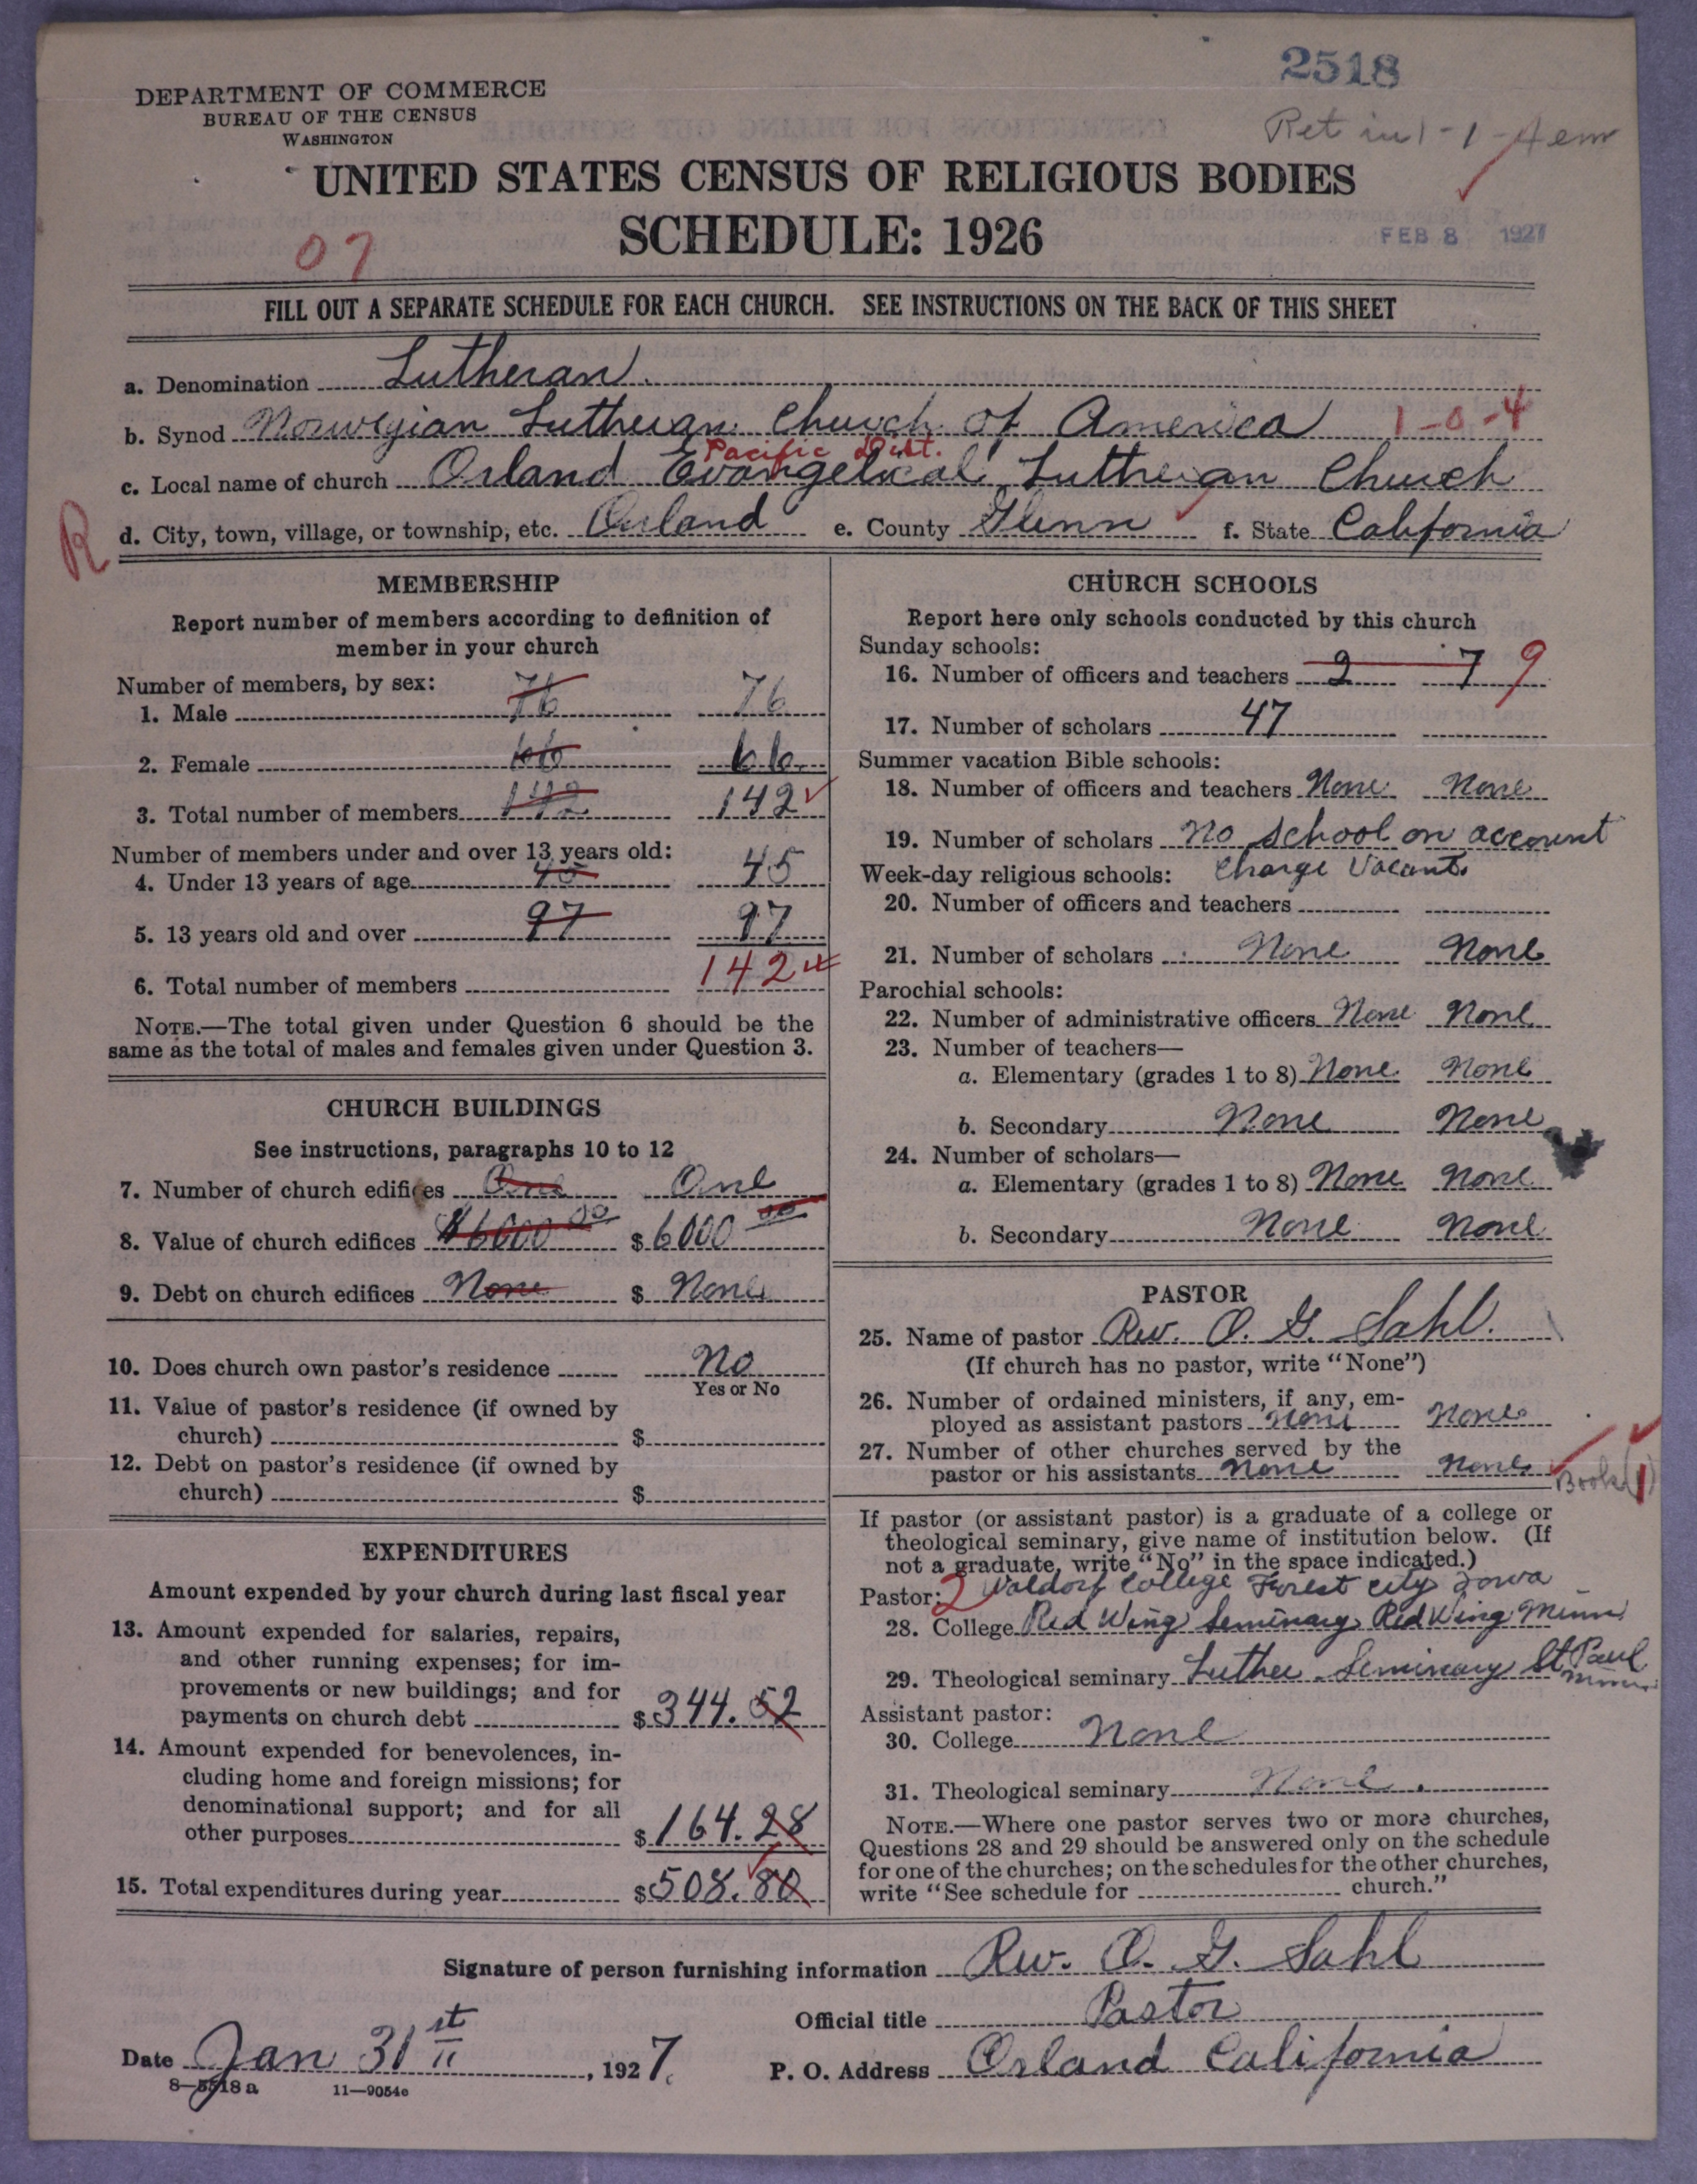 2518
DEPARTMENT OF COMMERCE
BUREAU OF THE CENSUS
WASHINGTON
Ret in 1-1-
UNITED STATES CENSUS OF RELIGIOUS BODIES
SCHEDULE: 1926
FEB 8 1927
07
FILL OUT A SEPARATE SCHEDULE FOR EACH CHURCH. SEE INSTRUCTIONS ON THE BACK OF THIS SHEET
a. Denomination Lutheran.
b. Synod Norwegian Lutheran Church of America 1-0-4
Pacific Dist.
c. Local name of church Orland Evangelical Lutheran Church
R
d. City, town, village, or township, etc. Orland e. County Glenn f. State California
MEMBERSHIP
Report number of members according to definition of
member in your church
Number of members, by sex:
1. Male 76 76
2. Female 66 66
3. Total number of members 142 142
Number of members under and over 13 years old:
4. Under 13 years of age 45 45
5. 13 years old and over 97 97
6. Total number of members 142
NOTE.—The total given under Question 6 should be the
same as the total of males and females given under Question 3.
CHURCH BUILDINGS
See instructions, paragraphs 10 to 12
7. Number of church edifices One One
8. Value of church edifices $6000 00 $ 6000 00
9. Debt on church edifices None $ None
10. Does church own pastor's residence No
Yes or No
11. Value of pastor's residence (if owned by
church) $
12. Debt on pastor's residence (if owned by
church) $
EXPENDITURES
Amount expended by your church during last fiscal year
13. Amount expended for salaries, repairs,
and other running expenses; for im-
provements or new buildings; and for
payments on church debt $ 344.52
14. Amount expended for benevolences, in-
cluding home and foreign missions; for
denominational support; and for all
other purposes $ 164.28
15. Total expenditures during year $ 508.80
CHURCH SCHOOLS
Report here only schools conducted by this church
Sunday schools:
16. Number of officers and teachers 2 7 9
17. Number of scholars 47
Summer vacation Bible schools:
18. Number of officers and teachers None None
19. Number of scholars No school on account
Week-day religious schools: Charge Vacant.
20. Number of officers and teachers
21. Number of scholars None None
Parochial schools:
22. Number of administrative officers None None
23. Number of teachers—
a. Elementary (grades 1 to 8) None None
b. Secondary None None
24. Number of scholars—
a. Elementary (grades 1 to 8) None None
b. Secondary None None
PASTOR
25. Name of pastor Rev. O. G. Sahl.
(If church has no pastor, write "None")
26. Number of ordained ministers, if any, em-
ployed as assistant pastors None None
27. Number of other churches served by the
pastor or his assistants None None Book (1)
If pastor (or assistant pastor) is a graduate of a college or
theological seminary, give name of institution below. (If
not a graduate, write "No" in the space indicated.)
Pastor: 2 Waldorf College Forest City Iowa
28. College Red Wing Seminary Red Wing Minn
29. Theological seminary Luther Seminary St Paul
Minn
Assistant pastor:
30. College None
31. Theological seminary None.
NOTE.—Where one pastor serves two or more churches,
Questions 28 and 29 should be answered only on the schedule
for one of the churches; on the schedules for the other churches,
write "See schedule for church."
Signature of person furnishing information Rev. O. G. Sahl
Official title Pastor
Date Jan 31st, 1927. P. O. Address Orland California
8—5518 a 11—9054e